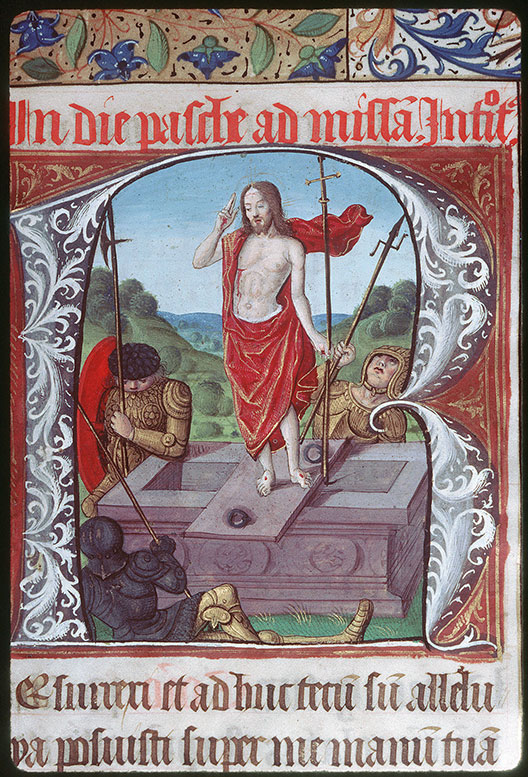 In die pasche ad missā. Intᵒit
REsurrexi et adhuc tecū sū allelu
ya posuisti super me manū tuā